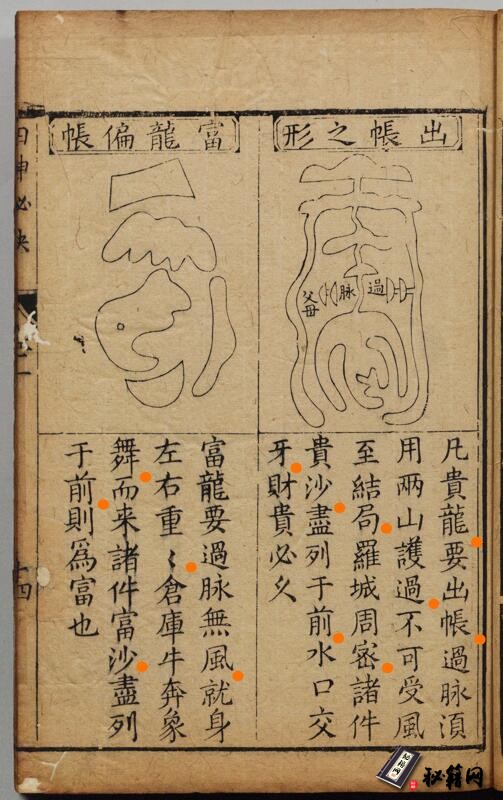 出帳之形
父母
過脉
凡貴龍要出帳過脉湏
用兩山護過不可受風
至結局羅城周密諸件
貴沙盡列于前水口交
牙財貴必久
富龍偏帳
富龍要過脉無風就身
左右重〻倉庫牛奔象
舞而来諸件富沙盡列
于前則爲富也
秘籍网